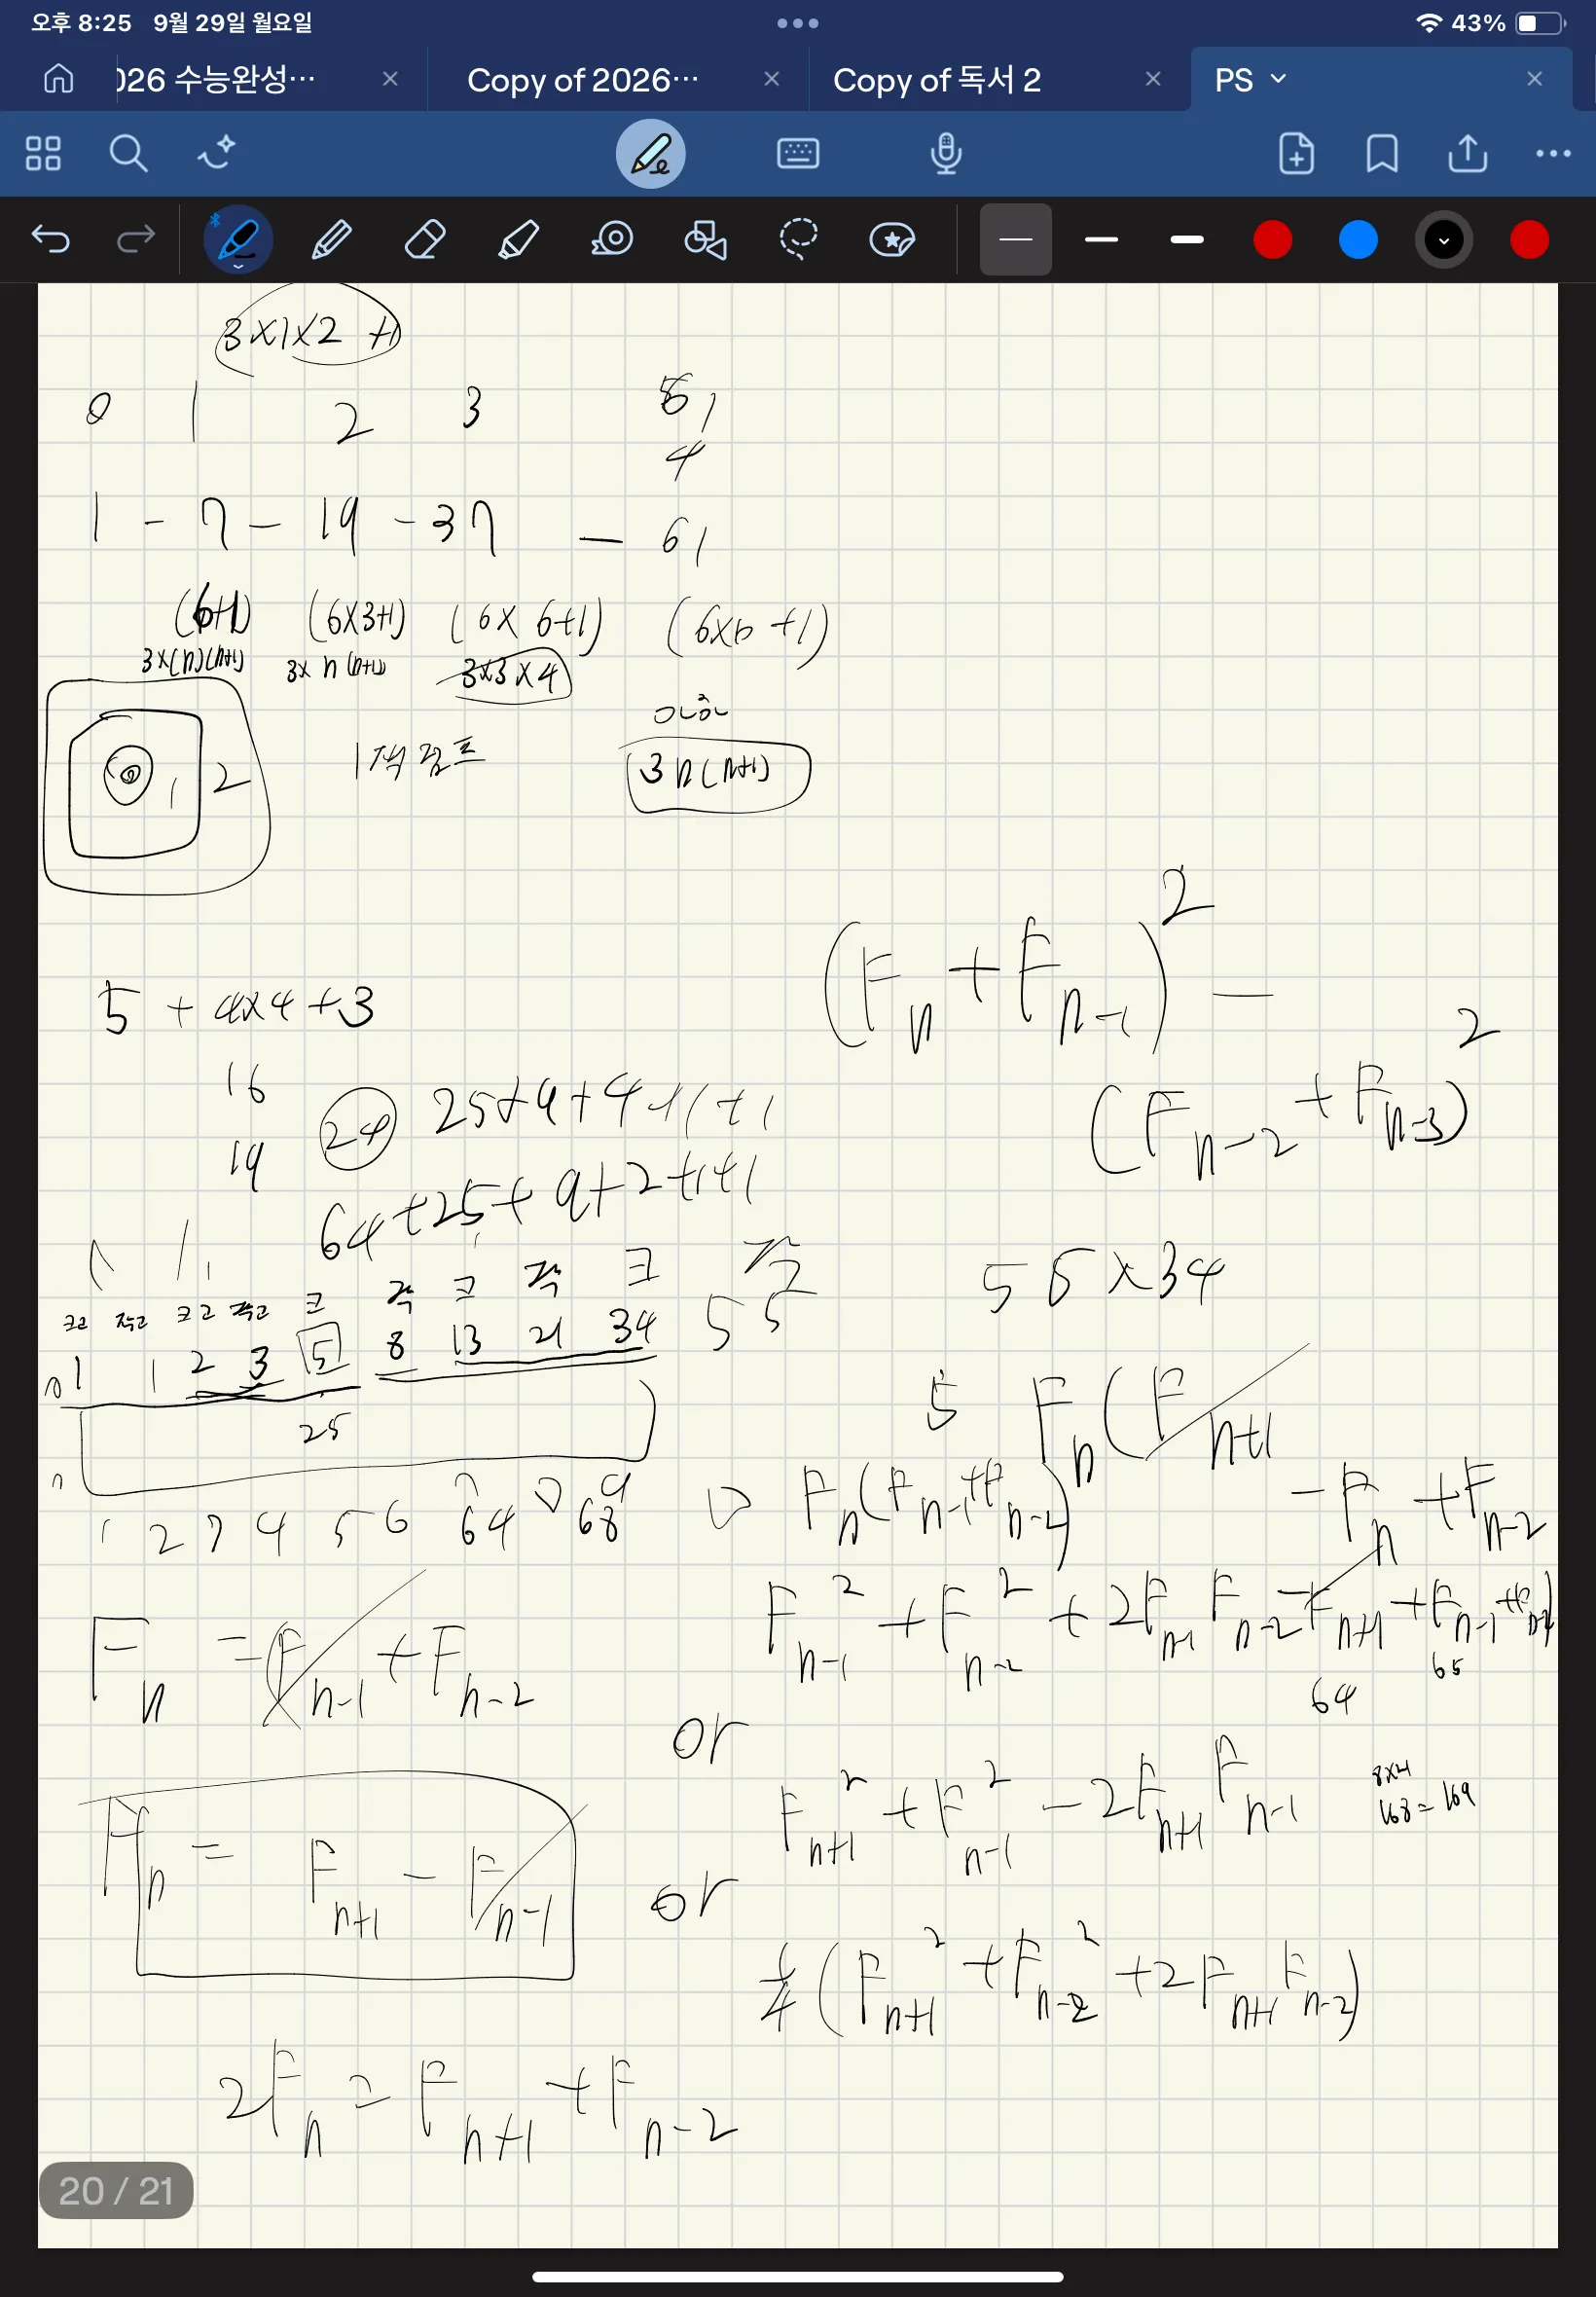 오후 8:25 9월 29일 월요일
43%
026 수능완성…
Copy of 2026…
Copy of 독서 2
PS
3×1×2 +1
0 1 2 3 5,
4
1 - 7 - 19 - 37 - 61
(6+1) (6×3+1) (6×6+1) (6×6+1)
3×(n)(n+1) 3×n(n+1) 3×3×4
3n(n+1)
1 2
(Fn + Fn-1)² -
(Fn-2 + Fn-3)²
5 + 4×4+3
16
19
24
25+9+4+1+1
64+25+9+2+1+1
크고 작고 크고 작고 크 작 크 작 크 작
1 1 2 3 5 8 13 21 34 55
25
55×34
1 2 3 4 5 6 64 68
5 Fn(Fn+1
Fn(Fn-1+Fn-2) -Fn+Fn-2
Fn = Fn-1 + Fn-2
Fn-1² + Fn-2² + 2Fn-1 Fn-2 - Fn+1 + Fn-1 + Fn-2
64 65
or
Fn+1² + Fn-1² - 2Fn+1 Fn-1
8×21
168=169
Fn = Fn+1 - Fn-1
or
1/4(Fn+1² + Fn-2² + 2Fn+1 Fn-2)
2Fn = Fn+1 + Fn-2
20 / 21